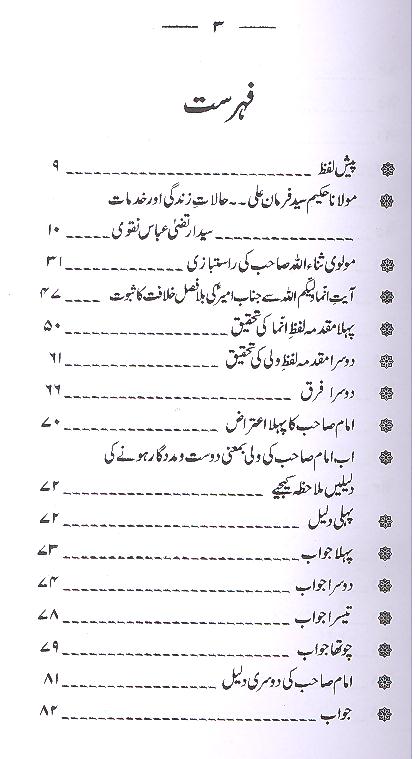 ۳
فہرست
پیش لفظ ۹
مولانا حکیم سید فرمان علی۔۔ حالاتِ زندگی اور خدمات
سید ارتضیٰ عباس نقوی ۱۰
مولوی ثناء اللہ صاحب کی راستبازی ۳۱
آیت انما ولیکم اللہ سے جناب امیرؑ کی بلا فصل خلافت کا ثبوت ۴۷
پہلا مقدمہ لفظ انما کی تحقیق ۵۰
دوسرا مقدمہ لفظ ولی کی تحقیق ۶۱
دوسرا فرق ۶۶
امام صاحب کا پہلا اعتراض ۷۰
اب امام صاحب کی ولی بمعنی دوست و مددگار ہونے کی
دلیلیں ملاحظہ کیجیے ۷۲
پہلی دلیل ۷۲
پہلا جواب ۷۳
دوسرا جواب ۷۴
تیسرا جواب ۷۸
چوتھا جواب ۷۹
امام صاحب کی دوسری دلیل ۸۱
جواب ۸۲